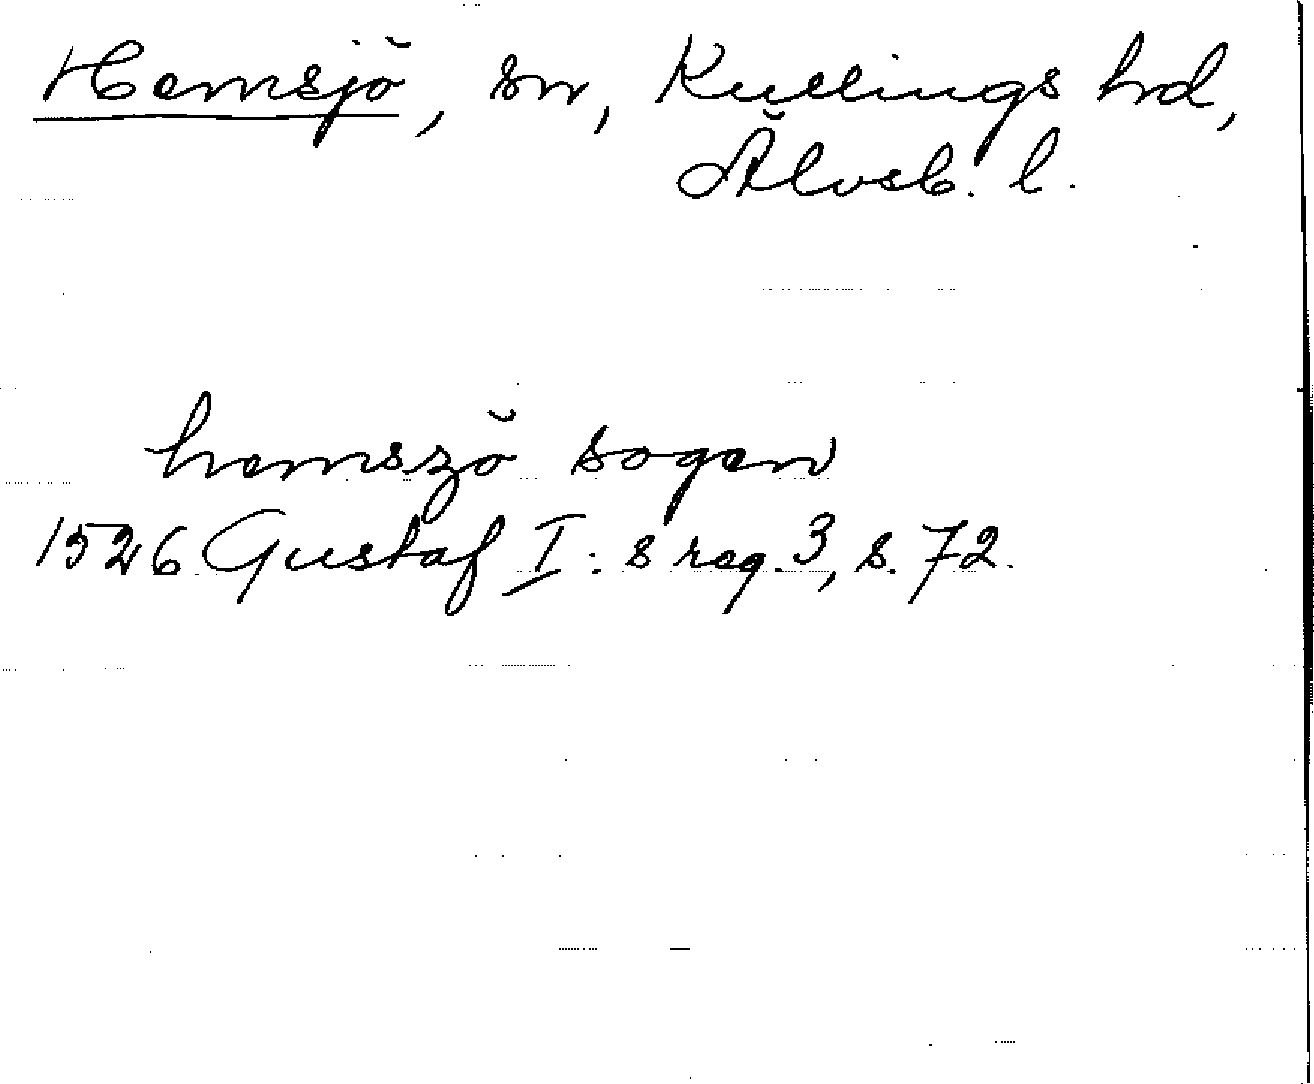 Hemsjö, sn, Kullings hd,
Älvsb. l.
hemszö sogen
1526 Gustaf I:s reg. 3, s. 72.